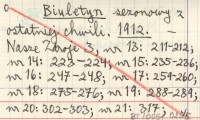 Biuletyn sezonowy z
ostatniej chwili. 1912. —
Nasze Zdroje 3, nr 13: 211-212;
nr 14: 223-224; nr 15: 235-236;
nr 16: 247-248; nr 17: 254-260;
nr 18: 275-276; nr 19: 288-289;
nr 20: 302-303; nr 21: 317;